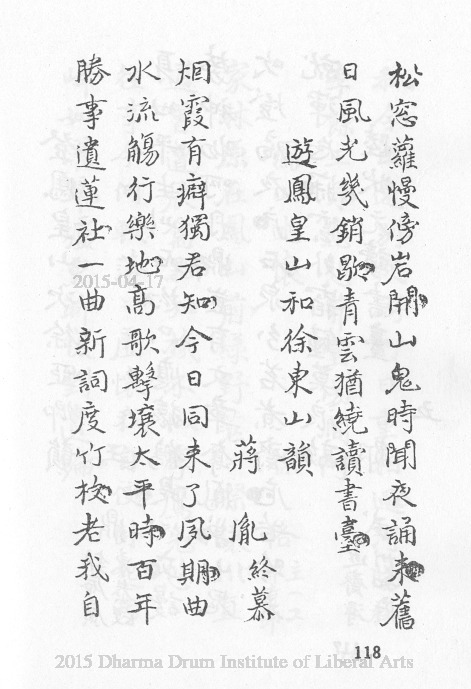 松窓蘿幔傍岩開山鬼時聞夜誦来舊
日風光幾銷歇青雲猶繞讀書臺
遊鳳皇山和徐東山韻
蔣胤終慕
烟霞有癖獨君知今日同来了夙期曲
水流觴行樂地髙歌擊壤太平時百年
勝事遺蓮社一曲新詞度竹枝老我自
2015-04-17
118
2015 Dharma Drum Institute of Liberal Arts